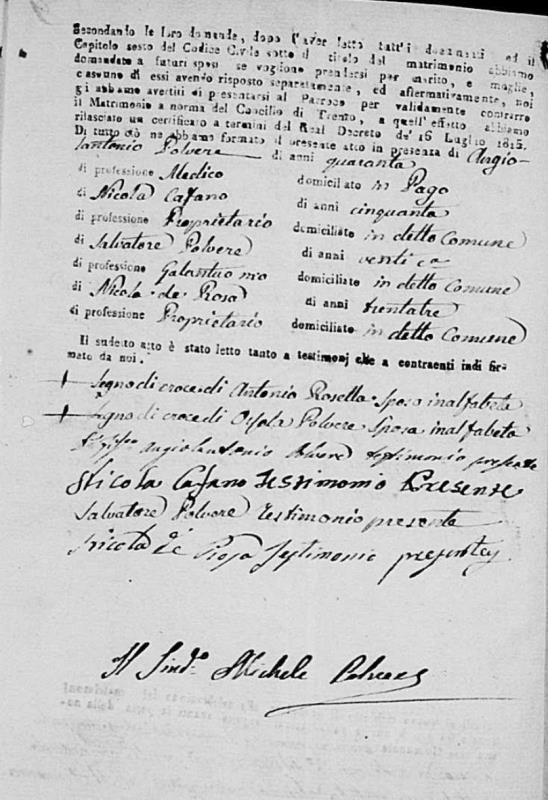 Secondando le loro domande, dopo l'aver letto tutt'i documenti ed il
Capitolo sesto del Codice Civile sotto il titolo del matrimonio abbiamo
domandato a' futuri sposi se vogliono prendersi per marito, e moglie,
cascuno di essi avendo risposto separatamente, ed affermativamente, noi
gi abbiamo avertiti di presentarsi al Parroco per validamente contrarre
il Matrimonio a norma del Concilio di Trento, a quell' effetto abbiamo
rilasciato un certificato a termini del Real Decreto de' 16 Luglio 1815.
Di tutto ciò ne abbiamo formato il presente atto in presenza di Angio-
lantonio Polvere di anni quaranta
di professione Medico domiciliato in Pago
di Nicola Cafano di anni cinquanta
di professione Proprietario domiciliato in detto Comune
di Salvatore Polvere di anni venti
di professione Galantuomo domiciliato in detto Comune
di Nicola de Rosa di anni trentatre
di professione Proprietario domiciliato in detto Comune
Il sudetto atto è stato letto tanto a testimonj che a contraenti indi fir-
mato da noi.
Segno di croce di Antonio Rosella Sposo inalfabeta
Segno di croce di Orsola Polvere Sposa inalfabeta
Angiolantonio Polvere testimonio presente
Nicola Cafano Testimonio Presente
Salvatore Polvere Testimonio presente
Nicola de Rosa Testimonio presente
Il Sind.o Michele Polvere